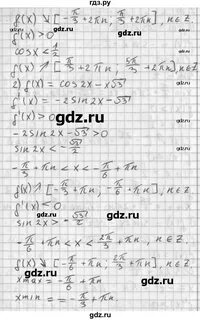 гдз.ру
f(x) ↘ [-π/3 + 2πn; π/3 + 2πn], n∈Z.
f'(x) > 0
cos x < 1/2
f(x) ↗ [π/3 + 2πn; 5π/3 + 2πn], n∈Z
2) f(x) = cos 2x - x√3
f'(x) = -2 sin 2x - √3
f'(x) > 0
-2 sin 2x - √3 > 0
sin 2x < -√3/2
-π/3 + πn < x < -π/6 + πn
f(x) ↗ [-π/3 + πn; -π/6 + πn], n∈Z.
f'(x) < 0
sin 2x > -√3/2
-π/6 + πn < x < 2π/3 + πn, n∈Z.
f(x) ↘ [-π/6 + πn; 2π/3 + πn], n∈Z.
xmax = -π/6 + πn
xmin = = -π/3 + πn.
gdz.ru